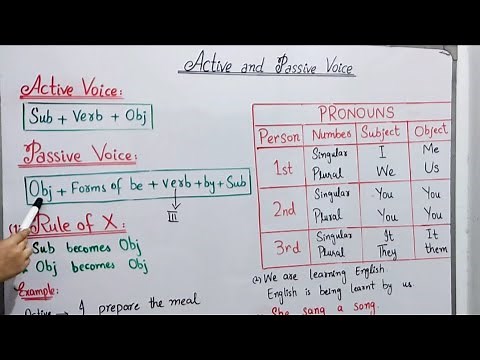 Active and Passive Voice
Active Voice:
Sub + Verb + Obj
Passive Voice:
Obj + Forms of be + verb + by + Sub
III
Rule of X:
Sub becomes Obj
Obj becomes Obj
Example:
Active → I prepare the meal
PRONOUNS
Person Number Subject Object
1st Singular I Me
Plural We Us
2nd Singular You You
Plural You You
3rd Singular It It
Plural They them
(2) We are learning English.
English is being learnt by us.
She sang a song.